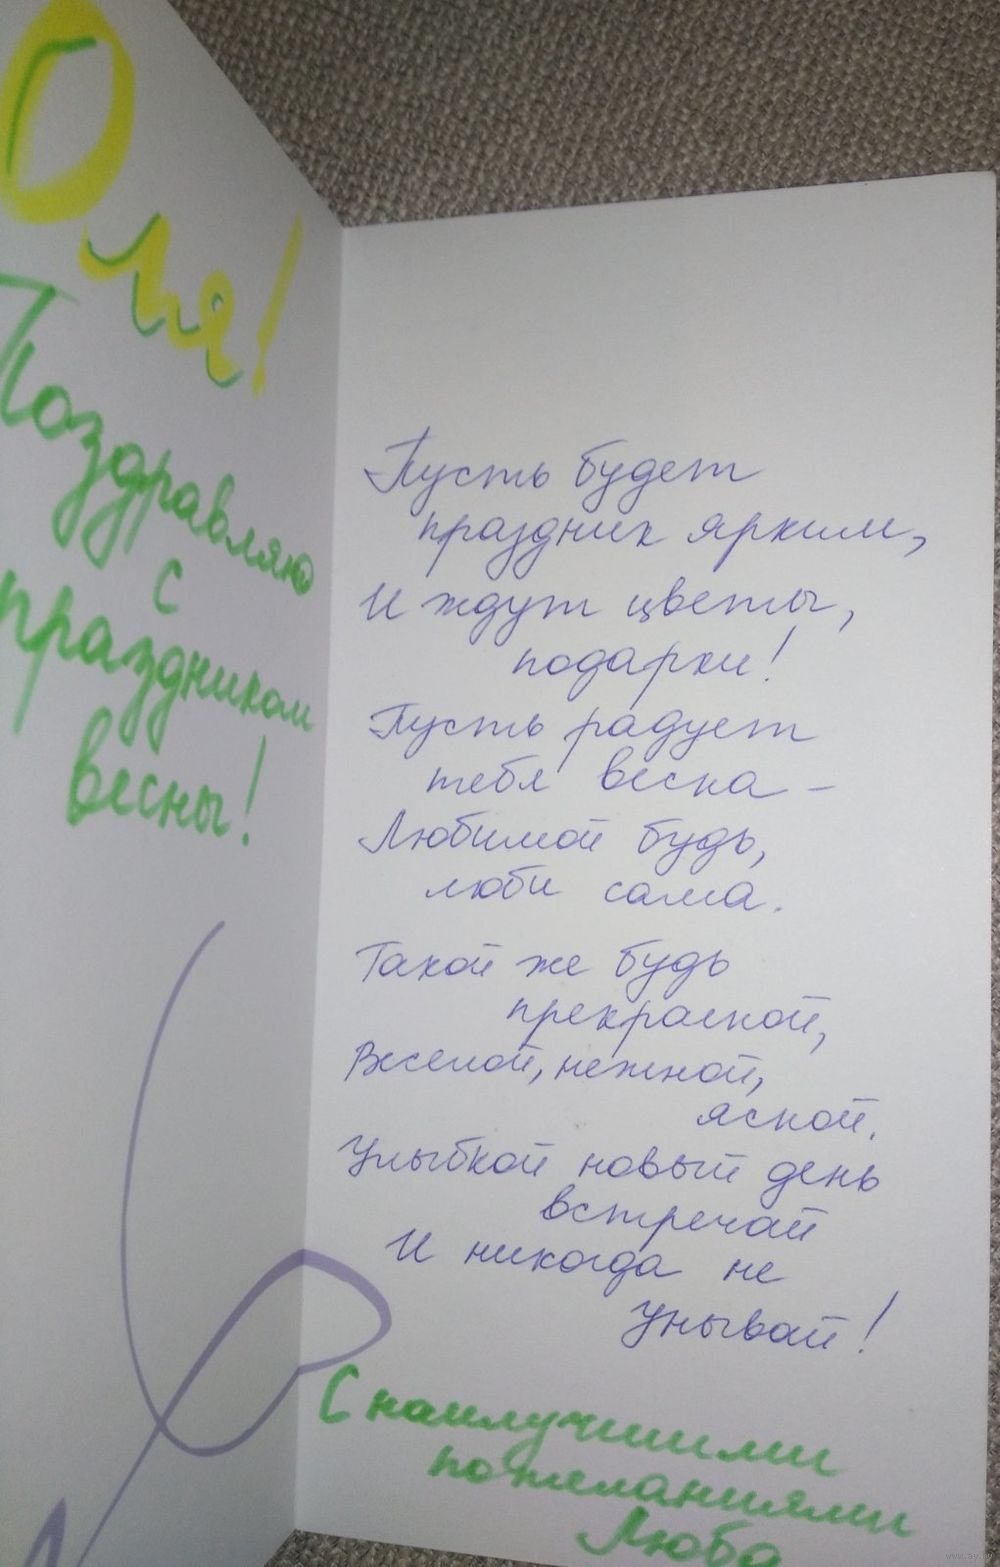 Оля!
Поздравляю
с
праздником
весны!
Пусть будет
праздник ярким,
И ждут цветы,
подарки!
Пусть радует
тебя весна –
Любимой будь,
люби сама.
Такой же будь
прекрасной,
Веселой, нежной,
ясной.
Улыбкой новый день
встречай
И никогда не
унывай!
С наилучшими
пожеланиями
Люба